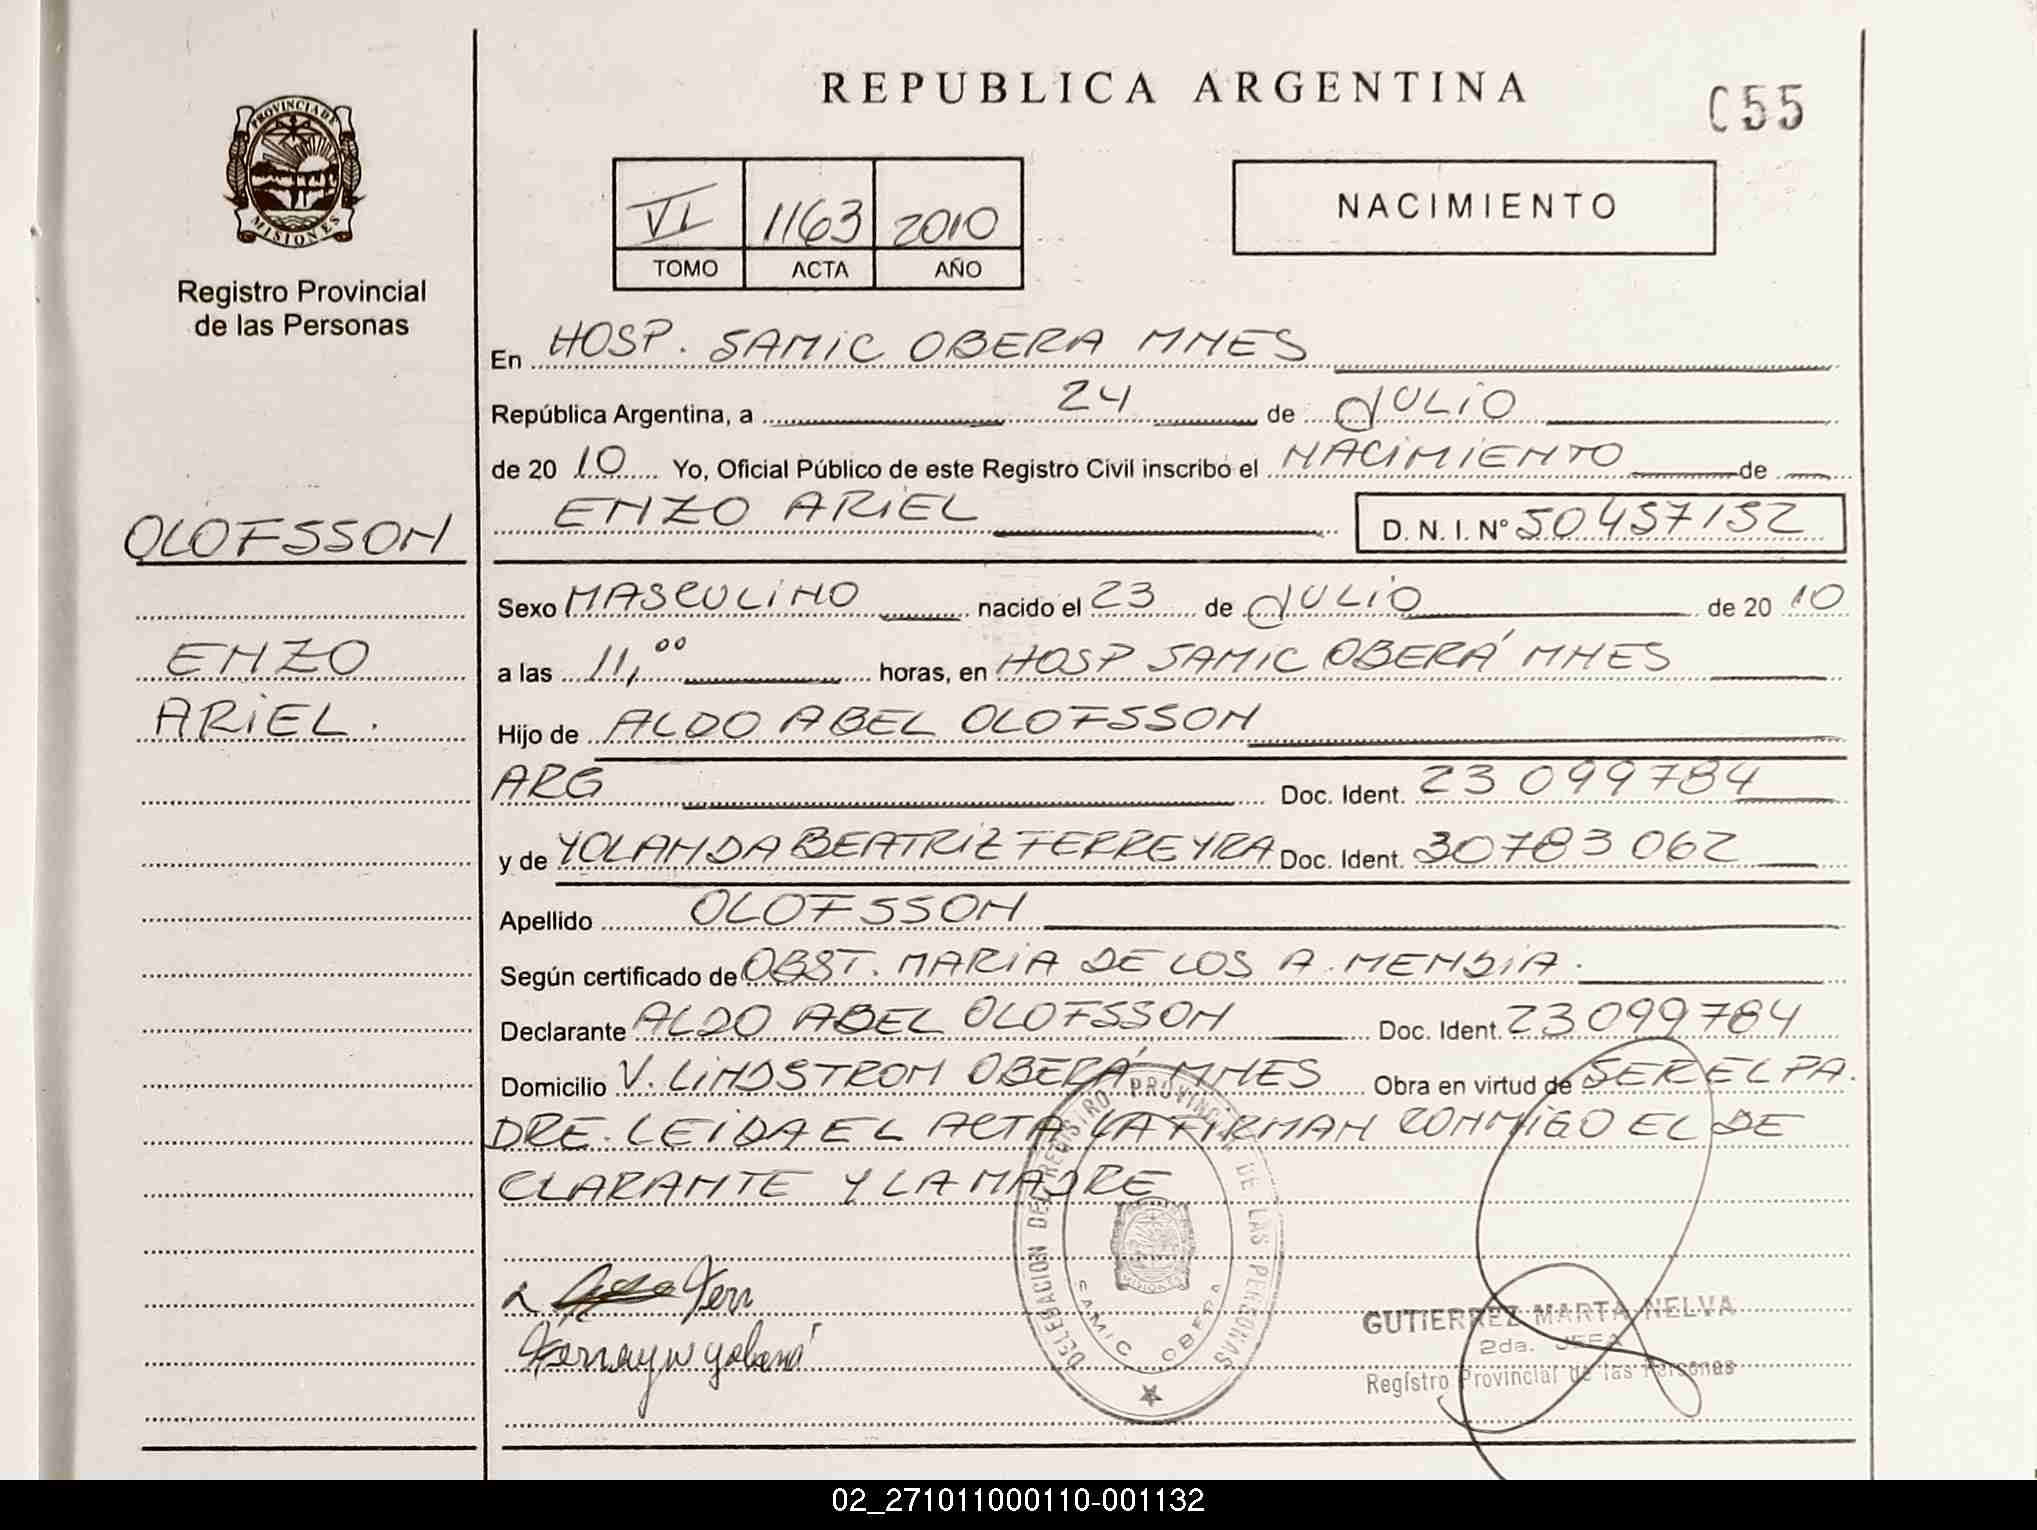 REPUBLICA ARGENTINA
C55
PROVINCIA DE
MISIONES
Registro Provincial
de las Personas
VI 1163 2010
TOMO ACTA AÑO
NACIMIENTO
En HOSP. SAMIC OBERA MNES
República Argentina, a 24 de JULIO
de 20 10 Yo, Oficial Público de este Registro Civil inscribo el NACIMIENTO de
ENZO ARIEL D. N. I. Nº 50457152
OLOFSSON
ENZO
ARIEL.
Sexo MASCULINO nacido el 23 de JULIO de 20 10
a las 11,00 horas, en HOSP SAMIC OBERÁ MNES
Hijo de ALDO ABEL OLOFSSON
ARG Doc. Ident. 23 099784
y de YOLANDA BEATRIZ FERREYRA Doc. Ident. 30783062
Apellido OLOFSSON
Según certificado de OBST. MARIA DE LOS A. MENDIA.
Declarante ALDO ABEL OLOFSSON Doc. Ident. 23099784
Domicilio V. LINDSTROM OBERÁ MNES Obra en virtud de SER EL PA.
DRE. LEIDA EL ACTA LA FIRMAN CONMIGO EL DE
CLARANTE Y LA MADRE
DELEGACION DEL REGISTRO PROVINCIAL DE LAS PERSONAS
SAMIC OBERA
GUTIERREZ MARTA NELVA
2da. JEFA
Registro Provincial de las Personas
02_271011000110-001132